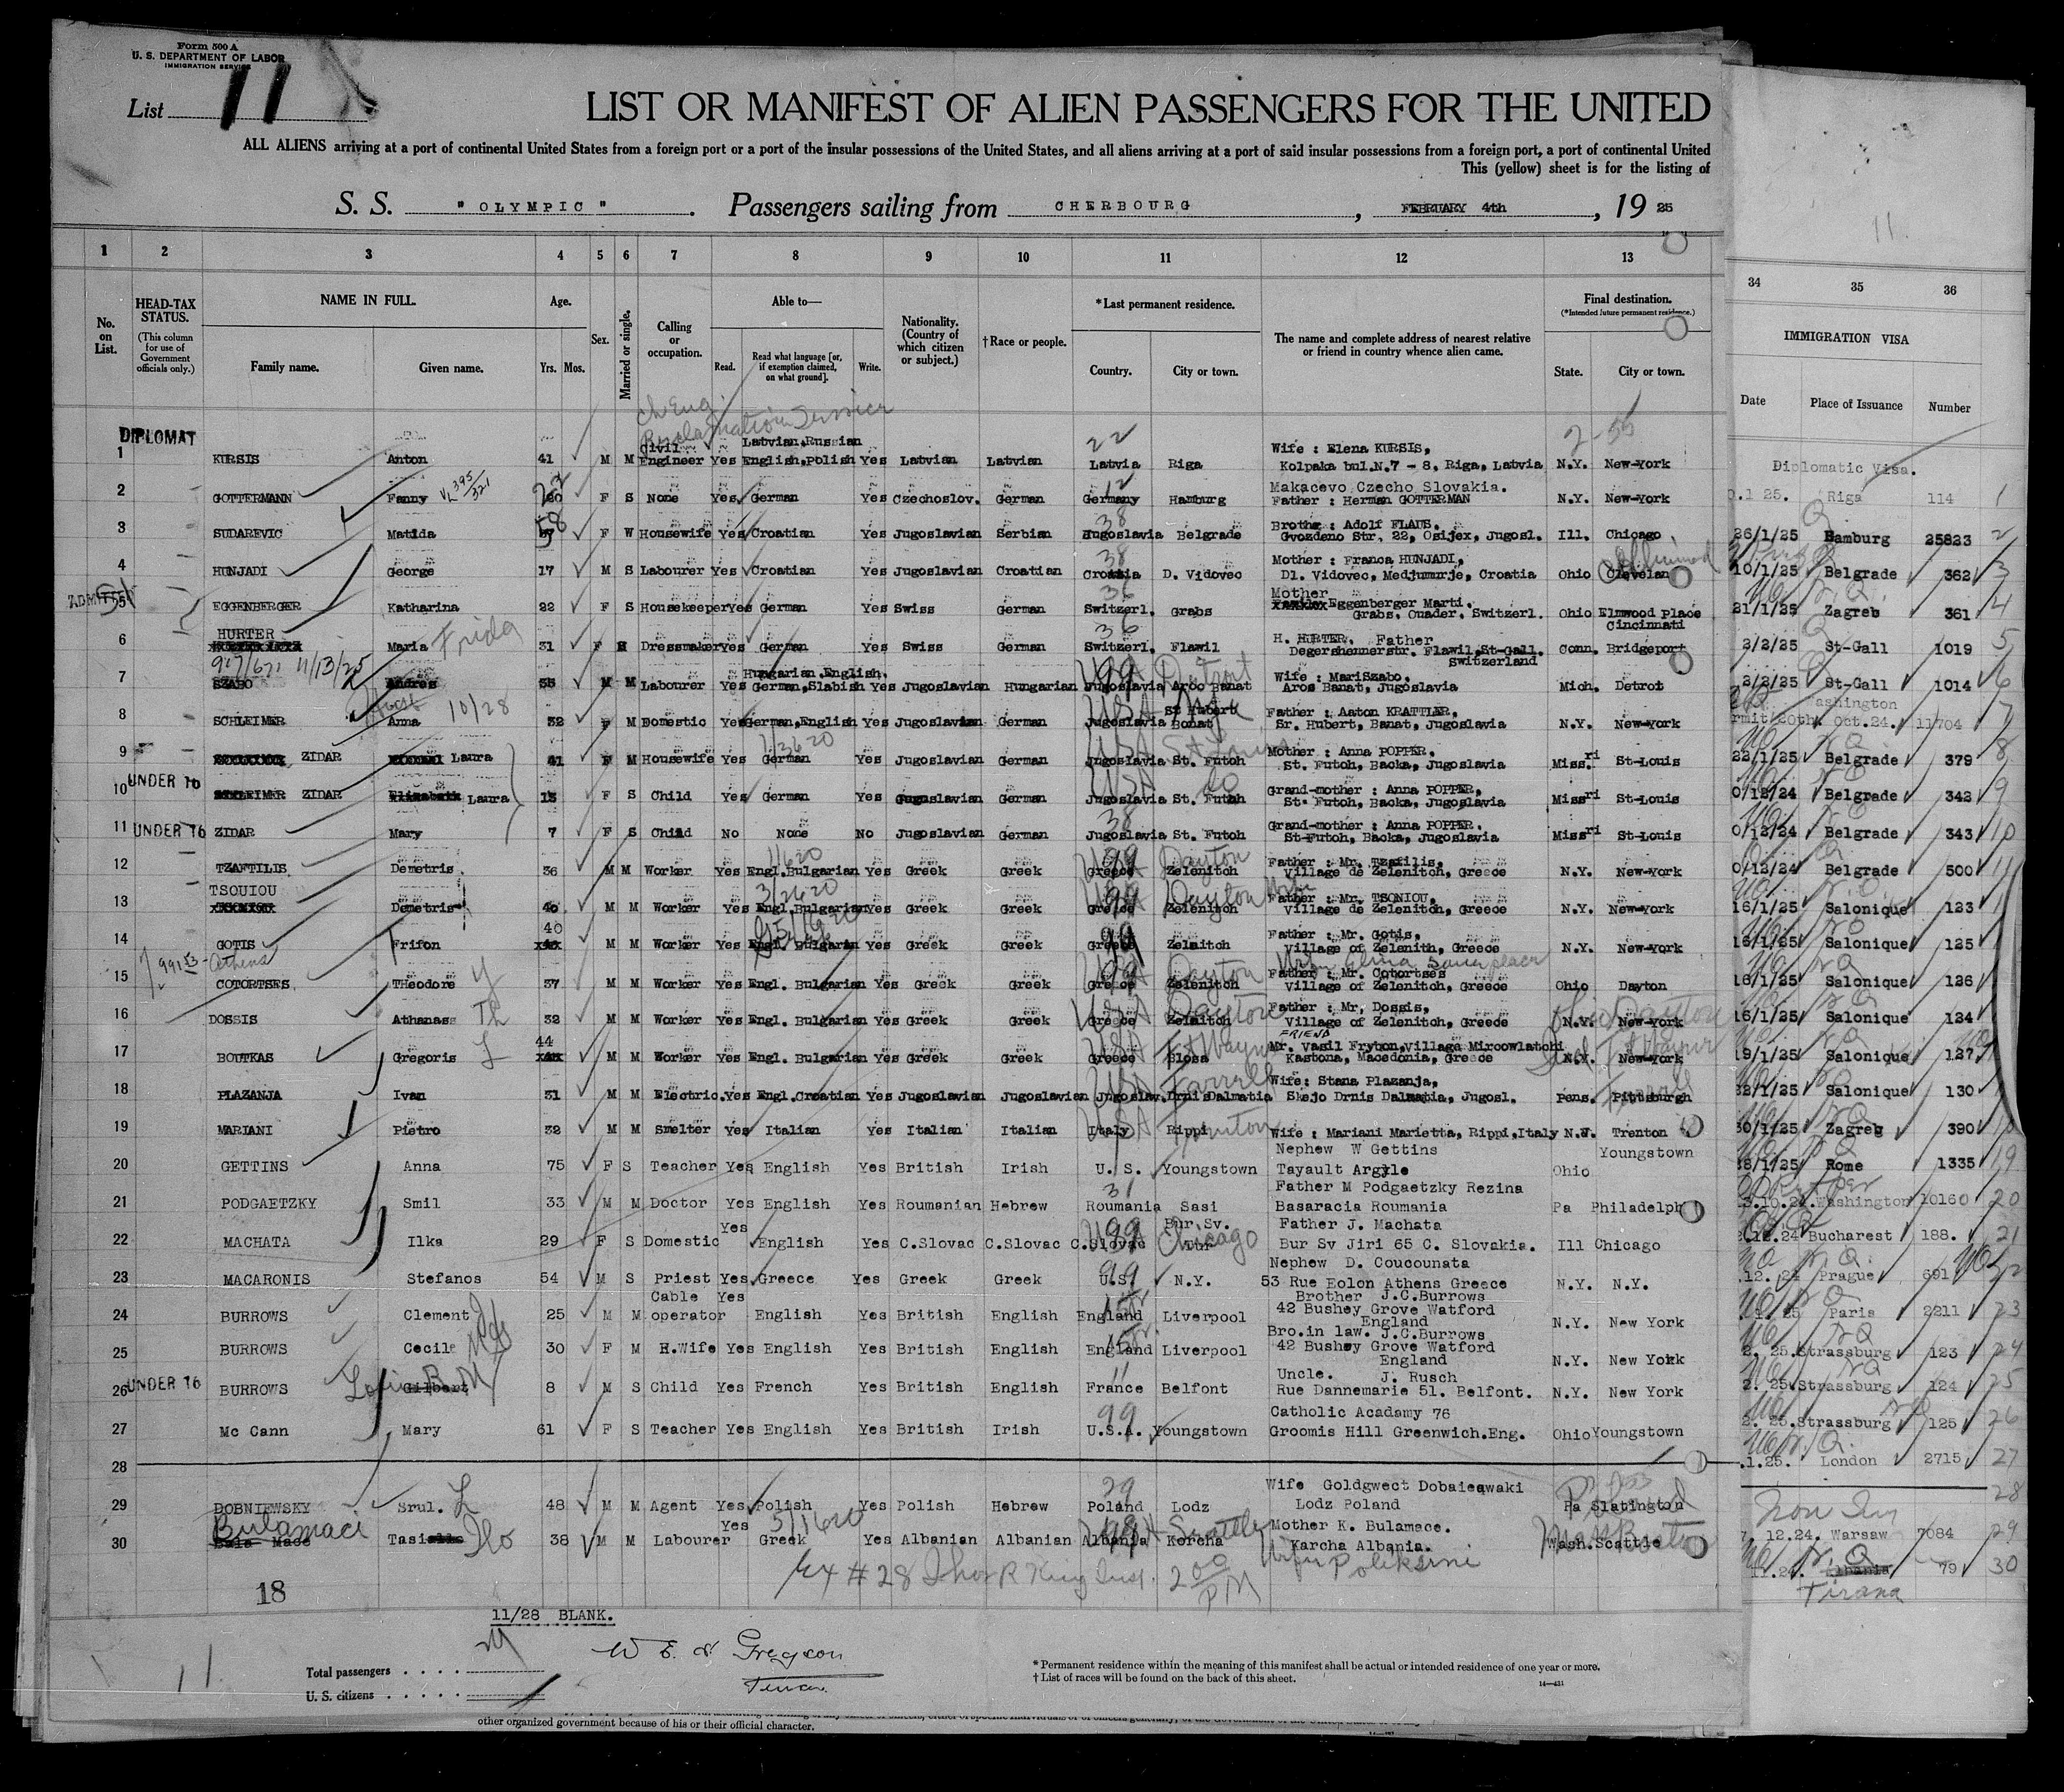 Form 500 A
U. S. DEPARTMENT OF LABOR
IMMIGRATION SERVICE
List 11
LIST OR MANIFEST OF ALIEN PASSENGERS FOR THE UNITED
ALL ALIENS arriving at a port of continental United States from a foreign port or a port of the insular possessions of the United States, and all aliens arriving at a port of said insular possessions from a foreign port, a port of continental United
This (yellow) sheet is for the listing of
S. S. " OLYMPIC " . Passengers sailing from CHERBOURG , FEBRUARY 4th , 19 25
11.
1 2 3 4 5 6 7 8 9 10 11 12 13 34 35 36
No. on List.
HEAD-TAX STATUS.
(This column for use of Government officials only.)
NAME IN FULL.
Family name. Given name.
Age.
Yrs. Mos.
Sex.
Married or single.
Calling or occupation.
Able to—
Read. Read what language [or, if exemption claimed, on what ground]. Write.
Nationality. (Country of which citizen or subject.)
†Race or people.
*Last permanent residence.
Country. City or town.
The name and complete address of nearest relative or friend in country whence alien came.
Final destination.
(*Intended future permanent residence.)
State. City or town.
IMMIGRATION VISA
Date Place of Issuance Number
Ch Eng.
Reclamation Service
DIPLOMAT
Civil Latvian,Russian 22 Wife : Elena KURSIS, 2-55
1 KURSIS Anton 41 M M Engineer Yes English,Polish Yes Latvian Latvian Latvia Riga Kolpaka bul.N.7 - 8, Riga, Latvia N.Y. New-York Diplomatic Visa.
VL 395/321 12 Makacevo Czecho Slovakia.
2 GOTTERMANN Fanny 22 F S None Yes German Yes Czechoslov. German Germany Hamburg Father : Herman GOTTERMAN N.Y. New-York 0.1 25. Riga 114 1
38 Brothe : Adolf FLAUS.
3 SUDAREVIC Matida 58 F W Housewife Yes Croatian Yes Jugoslavian Serbian Jugoslavia Belgrade Gvozdeno Str. 22, Osijex, Jugosl. Ill. Chicago 26/1/25 Hamburg 25823 2
38 Mother : Franca HUNJADI,
4 HUNJADI George 17 M S Labourer Yes Croatian Yes Jugoslavian Croatian Croatia D. Vidovec Dl. Vidovec, Medjumurje, Croatia Ohio Clevelan 10/1/25 Belgrade 362 3
ADMITTED 36 Mother
5 EGGENBERGER Katharina 22 F S Housekeeper Yes German Yes Swiss German Switzerl. Grabs Eggenberger Marti. Grabs. Quader. Switzerl. Ohio Elmwood Place Cincinnati 21/1/25 Zagreb 361 4
HURTER 36 H. HURTER. Father
6 Maria Frida 31 F M Dressmaker Yes German Yes Swiss German Switzerl. Flawil Degershennerstr. Flawil,St-Gall. Switzerland Conn. Bridgeport 2/2/25 St-Gall 1019 5
907/671 11/13/25 Hungarian,English. 99 Detroit Wife : MariSzabo.
7 SZABO Andres 35 M M Labourer Yes German,Slabish Yes Jugoslavian Hungarian Jugoslavia Aros Banat Aros Banat, Jugoslavia Mich. Detroi 2/2/25 St-Gall 1014 6
10/28 USA St Hubert Father : Aaton KRATTLER,
8 SCHLEIMER Anna 32 F M Domestic Yes German,English Yes Jugoslavian German Jugoslavia Banat Sr. Hubert, Banat, Jugoslavia N.Y. New-York rmit 20th. Oct.24. ashington 11704 7
1/3620 USA St Louis Mother : Anna POPPER,
9 ZIDAR Laura 41 F M Housewife Yes German Yes Jugoslavian German Jugoslavia St. Futoh St. Futoh, Backa, Jugoslavia Miss.ri St-Louis 22/1/25 Belgrade 379 8
UNDER 16 USA do Grand-mother : Anna POPPER,
10 ZIDAR Laura 13 F S Child Yes German Yes Jugoslavian German Jugoslavia St. Futoh St. Futoh, Backa, Jugoslavia Missri St-Louis 0/12/24 Belgrade 342 9
38 Grand-mother : Anna POPPER.
11 UNDER 16 ZIDAR Mary 7 F S Child No None No Jugoslavian German Jugoslavia St. Futoh St-Futoh, Backa, Jugoslavia Missri St-Louis 0/12/24 Belgrade 343 10
11620 USA 99 Dayton Father : Mr. Tzafilis,
12 TZAFTILIS Demetris 36 M M Worker Yes Engl.Bulgarian Yes Greek Greek Greece Zelenitch Village de Zelenitch, Greece N.Y. New-York 0/12/24 Belgrade 500 11
TSOUIOU 3/2620 USA 99 Dayton Father : Mr. TSONIOU,
13 Demetris 40 M M Worker Yes Engl.Bulgarian Yes Greek Greek Greece Zelenitch Village de Zelenitch, Greece N.Y. New-York 16/1/25 Salonique 123
40 99 Father : Mr. Gotis,
14 GOTIS Frifon M M Worker Yes Engl. Bulgaran Yes Greek Greek Greece Zelaitch Village of Zelenith, Greece N.Y. New-York 16/1/25 Salonique 125
991 53 Athens USA 99 Dayton Father : Mr. Cotortses
15 COTORTSES THeodore 37 M M Worker Yes Engl. Bulgarian Yes Greek Greek Greece Zelenitch Village of Zelenitch, Greece Ohio Dayton 16/1/25 Salonique 126
USA Dayton Father : Mr, Dossis, Ohio Dayton
16 DOSSIS Athanas Th 32 M M Worker Yes Engl. Bulgarian Yes Greek Greek Greece Zelaitch Village of Zelenitch, Greece N.Y. New-York 16/1/25 Salonique 124
44 USA Ft Wayne FRIEND Mr. Vasil Fryton,Village Mircowlatohi Ft Wayne
17 BOUTKAS Gregoris L M M Worker Yes Engl. Bulgarian Yes Greek Greek Greece Slosa Kastona, Macedonia, Greece N.Y. New-York 19/1/25 Salonique 127
USA Farrell Wife: Stana Plazanja, Farrell
18 PLAZANJA Ivan 31 M M Electric. Yes Engl.Croatian Yes Jugoslavian Jugoslavian Jugoslav. Drnis Dalmatia Skejo Drnis Dalmatia, Jugosl. Pens. Pittsburgh 22/1/25 Salonique 130
USA Trenton
19 MARIANI Pietro 32 M M Smelter Yes Italian Yes Italian Italian Italy Rippi Wife : Mariani Marietta, Rippi,Italy N.J. Trenton 30/1/25 Zagreb 390
Nephew W Gettins Youngstown
20 GETTINS Anna 75 F S Teacher Yes English Yes British Irish U. S. Youngstown Tayault Argyle Ohio 28/1/25 Rome 1335 19
31 Father M Podgaetzky Rezina
21 PODGAETZKY Smil 33 M M Doctor Yes English Yes Roumanian Hebrew Roumania Sasi Basaracia Roumania Pa Philadelph Washington 10160 20
Yes USA 99 Bur Sv. Chicago Father J. Machata
22 MACHATA Ilka 29 F S Domestic English Yes C.Slovac C.Slovac C.Slovac Bur Sv Jiri 65 C. Slovakia. Ill Chicago 2.12.24 Bucharest 188. 21
99 Nephew D. Coucounata
23 MACARONIS Stefanos 54 M S Priest Yes Greece Yes Greek Greek U.S. N.Y. 53 Rue Eolon Athens Greece N.Y. N.Y. .12. 24 Prague 691 22
Cable Yes Brother J.C.Burrows
24 BURROWS Clement 25 M M operator English Yes British English England Liverpool 42 Bushey Grove Watford England N.Y. New York 1. 25 Paris 2211 23
Bro.in law. J.C.Burrows
25 BURROWS Cecile 30 F M H.Wife Yes English Yes British English England Liverpool 42 Bushey Grove Watford England N.Y. New York 2. 25.Strassburg 123 24
11 Uncle. J. Rusch
26 UNDER 16 BURROWS Gilbert 8 M S Child Yes French Yes British English France Belfont Rue Dannemarie 51. Belfont. N.Y. New York 2. 25.Strassburg 124 25
99 Catholic Acadamy 76
27 Mc Cann Mary 61 F S Teacher Yes English Yes British Irish U.S.A. Youngstown Groomis Hill Greenwich.Eng. Ohio Youngstown 2. 25.Strassburg 125 26
28 .1.25. London 2715 27
29 Wife Goldgwect Dobaieqwaki 28
29 DOBNIEWSKY Srul. L 48 M M Agent Yes Polish Yes Polish Hebrew Poland Lodz Lodz Poland Pa Slatington 7. 12.24. Warsaw 7084 29
Bulamaci Yes 5/1620 USA Seattle Mother K. Bulamace. Mass Boston
30 Bale Mace Tasi Ilo 38 M M Labourer Greek Yes Albanian Albanian Albania Korcha Karcha Albania. Wash. Scattle 11.24. Albania 79 30
Wife Poliksini
Tirana
18
Ex # 28 Thos R King Insp. 2 00 PM
11/28 BLANK.
11
Total passengers . . . . .
U. S. citizens . . . . .
* Permanent residence within the meaning of this manifest shall be actual or intended residence of one year or more.
† List of races will be found on the back of this sheet.
14—431
other organized government because of his or their official character.